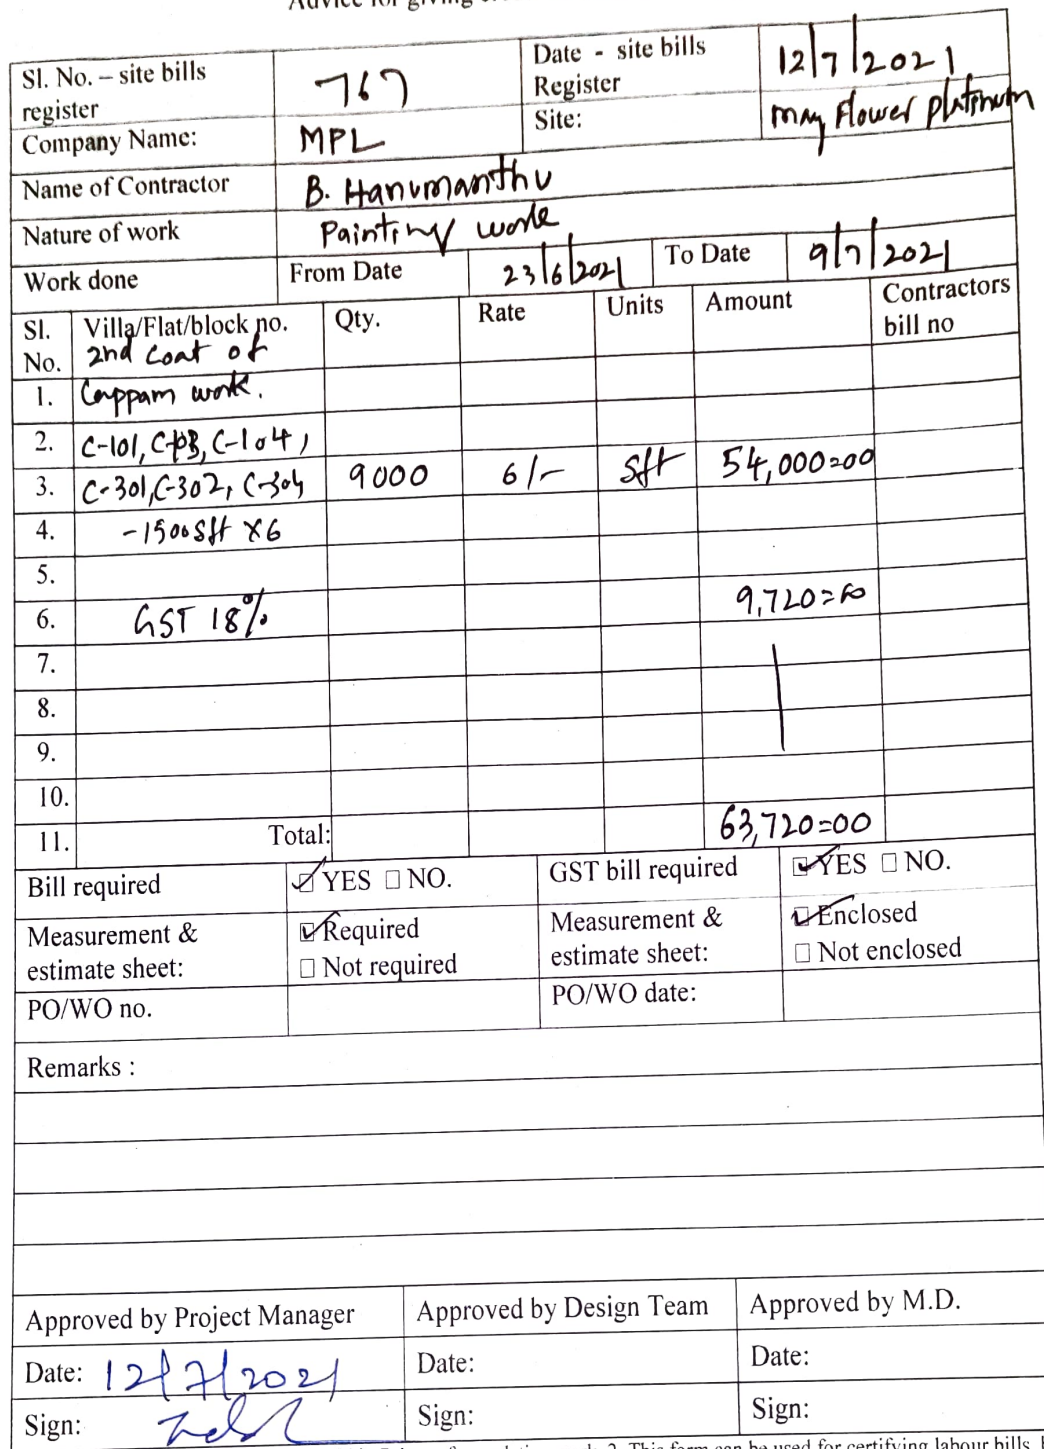 Sl. No. – site bills register 767 Date - site bills Register 12/7/2021
Company Name: MPL Site: may Flower platinum
Name of Contractor B. Hanumanthu
Nature of work Painting work
Work done From Date 23/6/2021 To Date 9/7/2021
Sl. No. Villa/Flat/block no. Qty. Rate Units Amount Contractors bill no
2nd coat of
1. Lappam work.
2. C-101, C-103, C-104,
3. C-301, C-302, C-304 9000 6/- sft 54,000=00
4. -1500sft x6
5.
6. GST 18% 9,720=00
7.
8.
9.
10.
11. Total: 63,720=00
Bill required ☑ YES □ NO. GST bill required ☑ YES □ NO.
Measurement & estimate sheet: ☑ Required Measurement & estimate sheet: ☑ Enclosed
□ Not required □ Not enclosed
PO/WO no. PO/WO date:
Remarks :
Approved by Project Manager Approved by Design Team Approved by M.D.
Date: 12/7/2021 Date: Date:
Sign: Sign: Sign:
This form can be used for certifying labour bills.